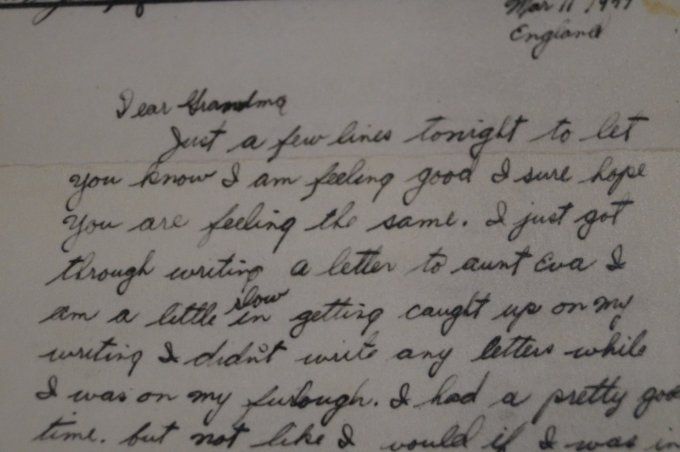 Mar 11
England
Dear Grandma
Just a few lines tonight to let
you know I am feeling good I sure hope
you are feeling the same. I just got
through writing a letter to aunt Eva I
am a little slow in getting caught up on my
writing I didn't write any letters while
I was on my furlough. I had a pretty good
time. but not like I would if I was in